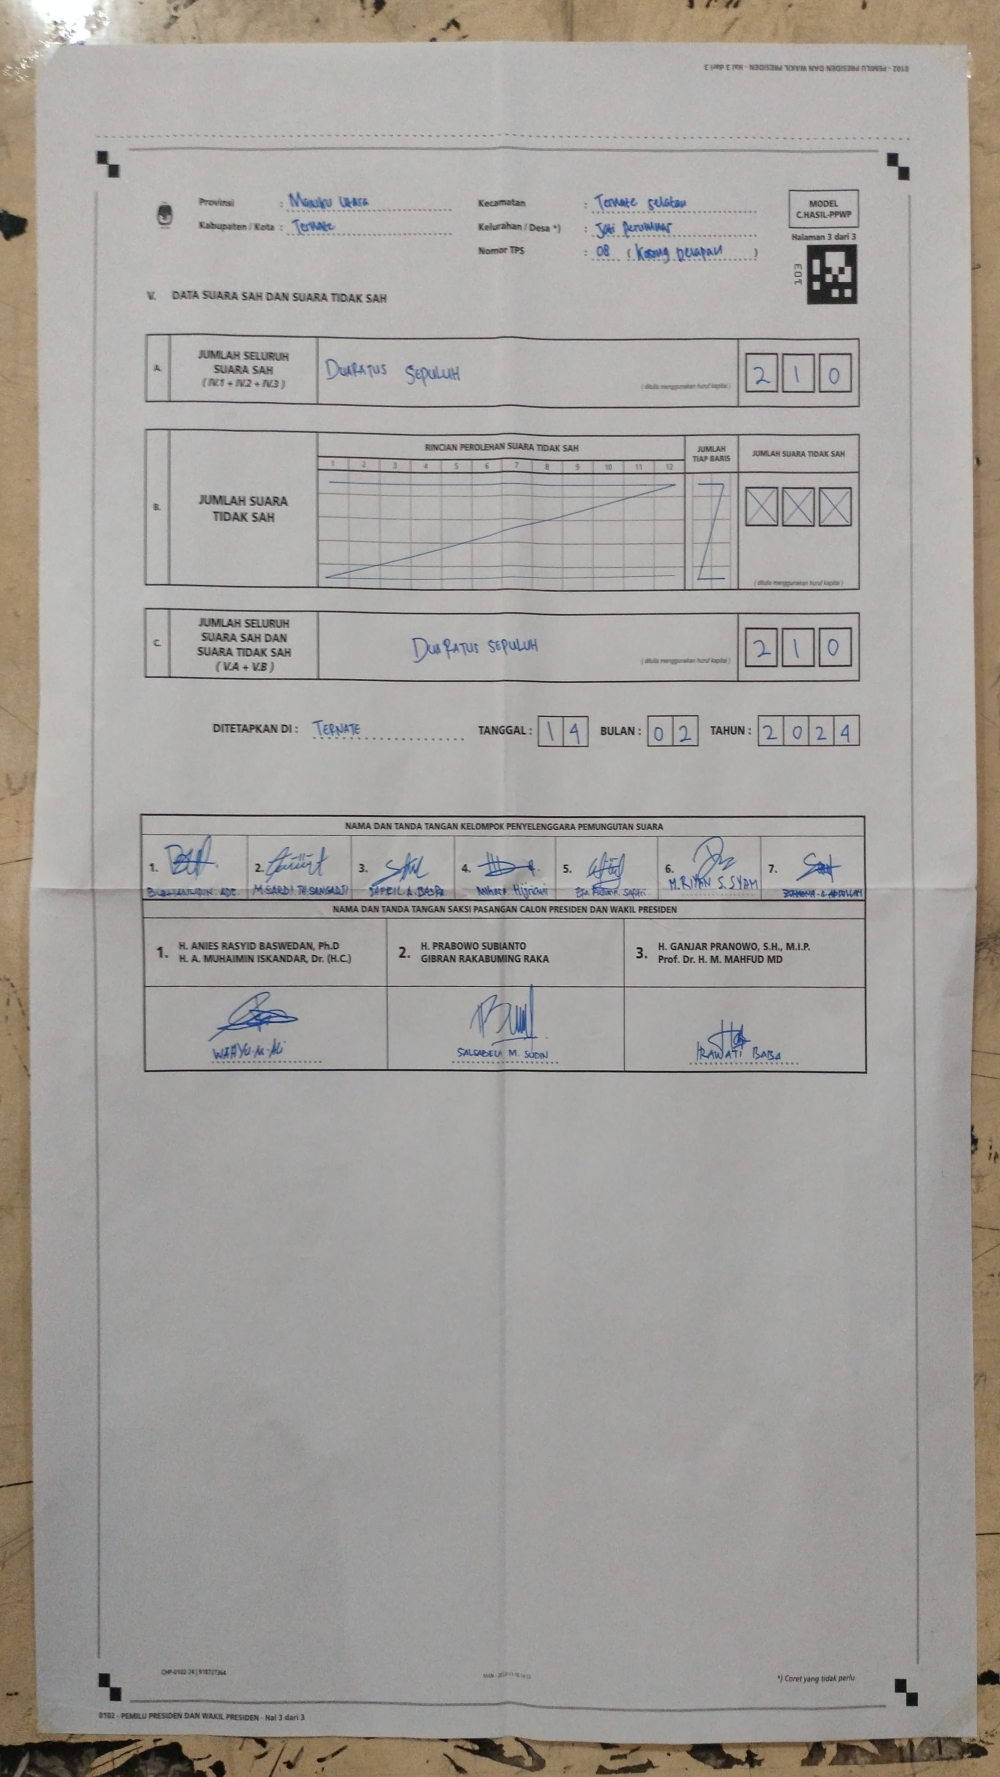 0102 - PEMILU PRESIDEN DAN WAKIL PRESIDEN - Hal 3 dari 3
Provinsi : Maluku Utara
Kabupaten / Kota : Ternate
Kecamatan : Ternate Selatan
Kelurahan / Desa *) : Jati Perumnas
Nomor TPS : 08 ( Kosong Delapan )
MODEL
C.HASIL-PPWP
Halaman 3 dari 3
V. DATA SUARA SAH DAN SUARA TIDAK SAH
A. JUMLAH SELURUH
SUARA SAH
( IV.1 + IV.2 + IV.3 )
DUARATUS SEPULUH
( ditulis menggunakan huruf kapital )
2 1 0
B. JUMLAH SUARA
TIDAK SAH
RINCIAN PEROLEHAN SUARA TIDAK SAH
1 2 3 4 5 6 7 8 9 10 11 12
JUMLAH
TIAP BARIS
JUMLAH SUARA TIDAK SAH
X X X
( ditulis menggunakan huruf kapital )
C. JUMLAH SELURUH
SUARA SAH DAN
SUARA TIDAK SAH
( V.A + V.B )
DUARATUS SEPULUH
( ditulis menggunakan huruf kapital )
2 1 0
DITETAPKAN DI : TERNATE TANGGAL : 14 BULAN : 02 TAHUN : 2024
NAMA DAN TANDA TANGAN KELOMPOK PENYELENGGARA PEMUNGUTAN SUARA
1. 2. 3. 4. 5. 6. 7.
M. RIYAN S. SYAM
NAMA DAN TANDA TANGAN SAKSI PASANGAN CALON PRESIDEN DAN WAKIL PRESIDEN
1. H. ANIES RASYID BASWEDAN, Ph.D
H. A. MUHAIMIN ISKANDAR, Dr. (H.C.)
2. H. PRABOWO SUBIANTO
GIBRAN RAKABUMING RAKA
3. H. GANJAR PRANOWO, S.H., M.I.P.
Prof. Dr. H. M. MAHFUD MD
WAHYU.M.ALI
M. SUDIN
IRAWATI BABA
*) Coret yang tidak perlu
0102 - PEMILU PRESIDEN DAN WAKIL PRESIDEN - Hal 3 dari 3